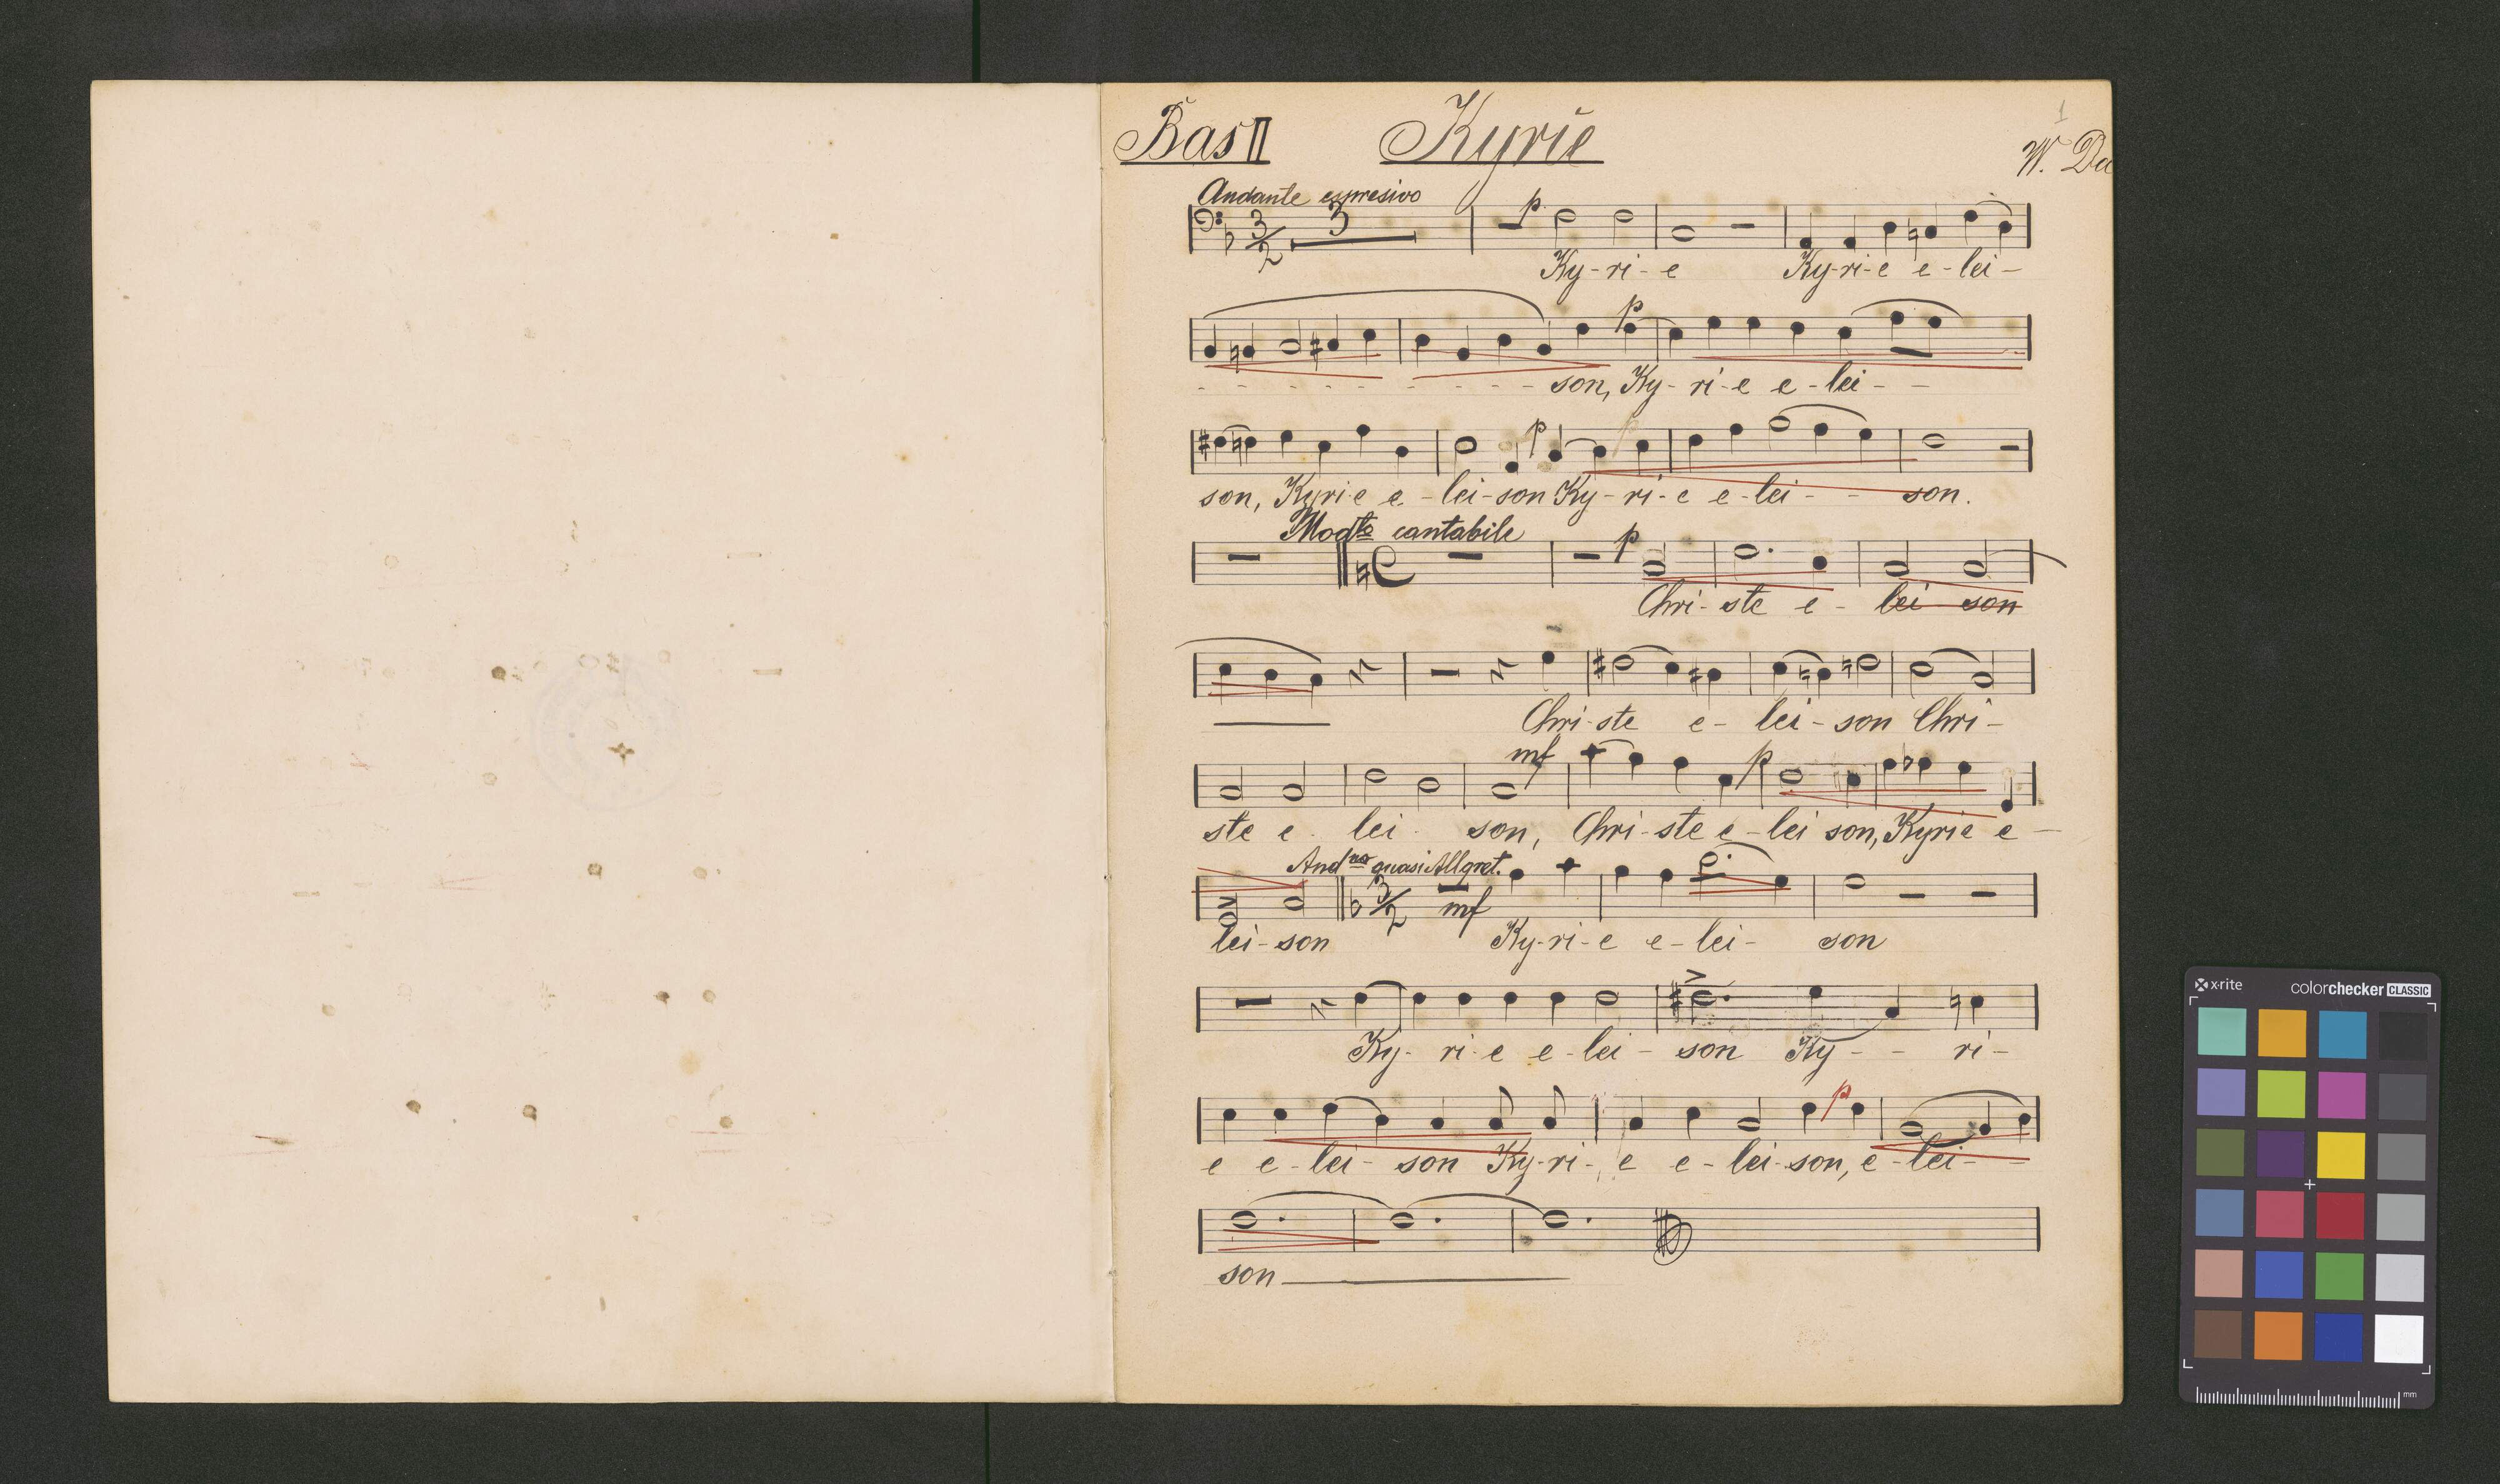 1
Bas II Kyrie W. Du
Andante espresivo
3/2 3 p
Ky-ri-e Kyrie e-lei-
p
son, Ky-ri-e e-lei--
p p
son, Kyrie e-lei-son Ky-ri-e e-lei-- son.
Modto cantabile
p
Chri-ste e-lei son
Chri-ste e-lei-son Chri-
mf p
ste e. lei. son, Chri-ste e-lei son, Kyrie e-
Andno quasi Allgret.
3/2 mf
lei-son Ky-ri-e e-lei- son
Ky-ri-e e-lei-son Ky-- ri-
p
e e-lei-son Ky-ri-e e-lei-son, e-lei--
son
x·rite colorchecker CLASSIC
mm